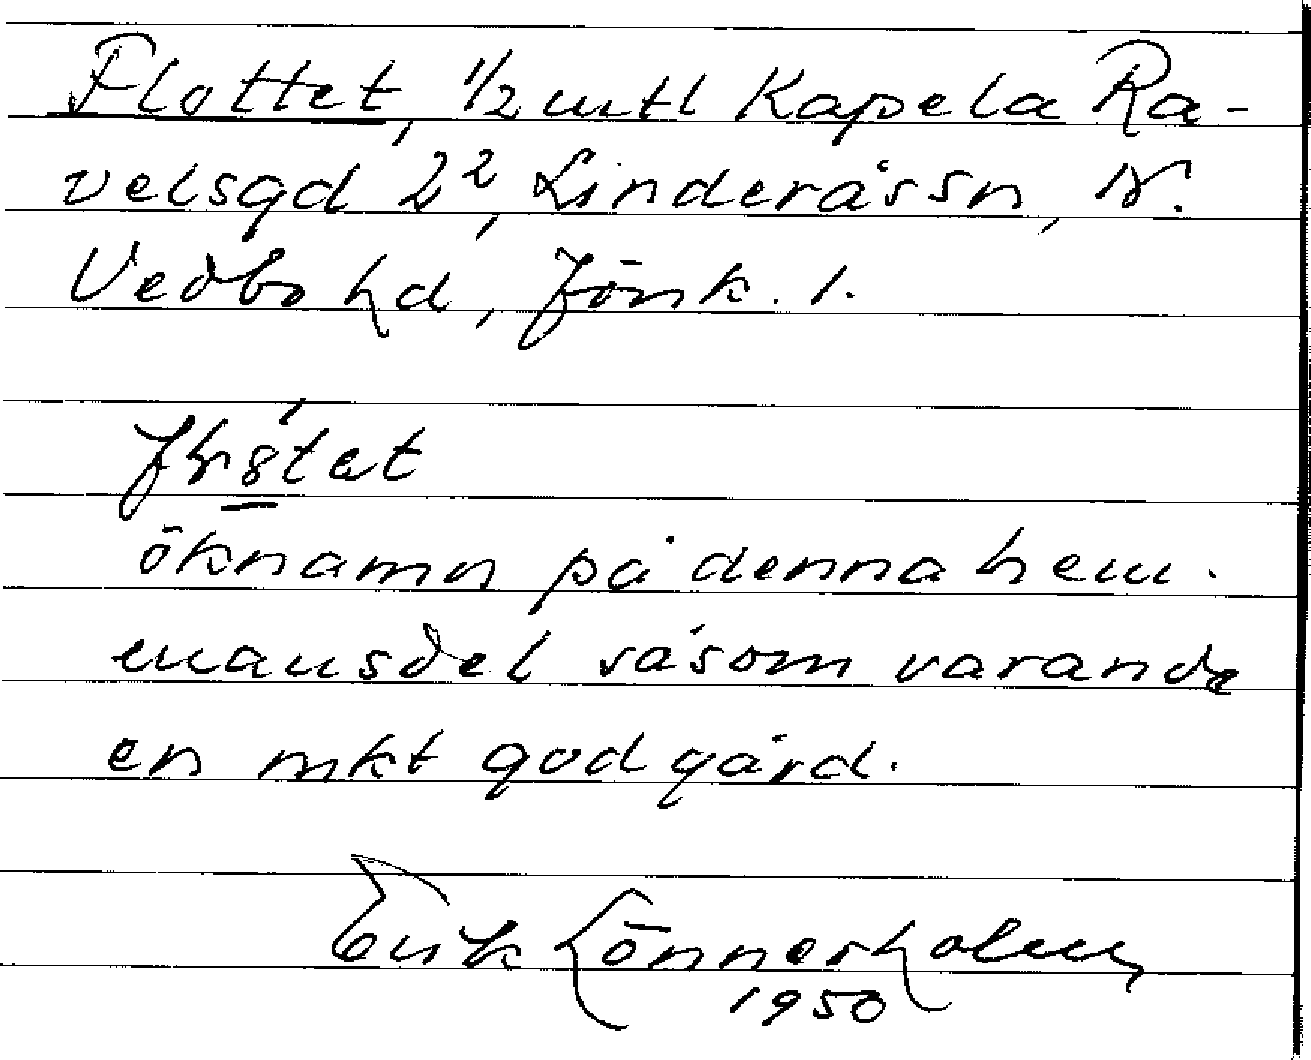 Flottet, 1/2 mtl Kapela Ra-
velsgd 2², Linderåssn, N.
Vedbo hd, Jönk. l.
öknamn på denna hem-
mansdel såsom varande
en mkt god gård.
Erik Lönnerholm
1950